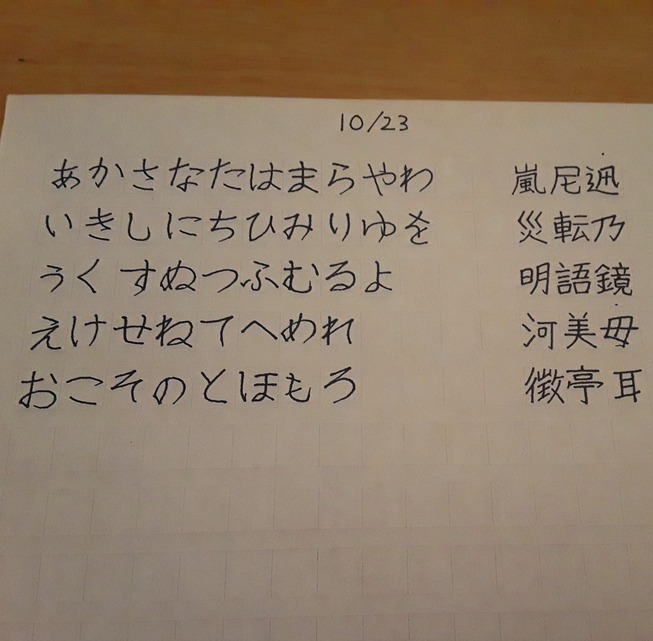 10/23
あかさなたはまらやわ 嵐尼迅
いきしにちひみりゆを 災転乃
うくすぬつふむるよ 明語鏡
えけせねてへめれ 河美毋
おこそのとほもろ 徴亭耳